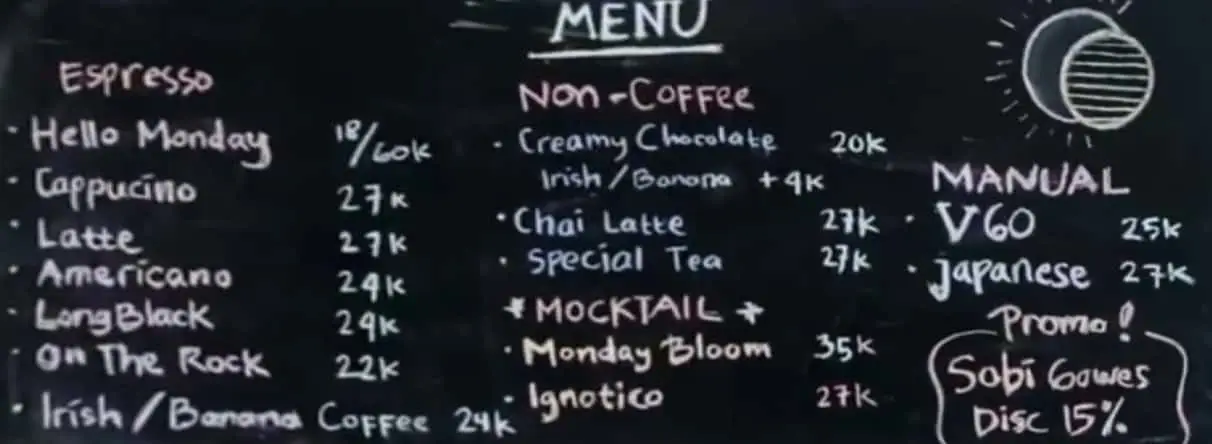 MENU
Espresso
· Hello Monday 18/60k
· Cappucino 27k
· Latte 27k
· Americano 24k
· Long Black 24k
· On The Rock 22k
· Irish / Banana Coffee 24k
Non-Coffee
· Creamy Chocolate 20k
Irish / Banana +4k
· Chai Latte 27k
· Special Tea 27k
* MOCKTAIL *
· Monday Bloom 35k
· Ignotico 27k
MANUAL
· V60 25k
· Japanese 27k
Promo!
Sobi Gowes
Disc 15%